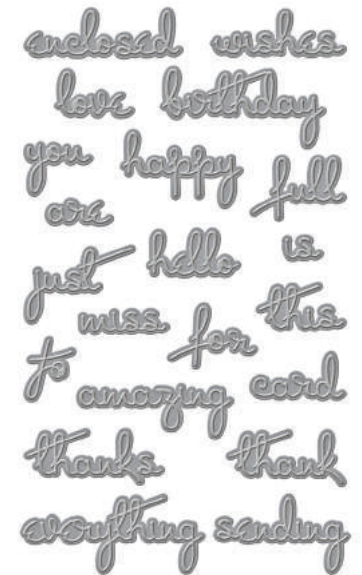 enclosed wishes
love birthday
you happy full
are
hello is
just
miss for this
to
amazing card
thanks thank
everything sending